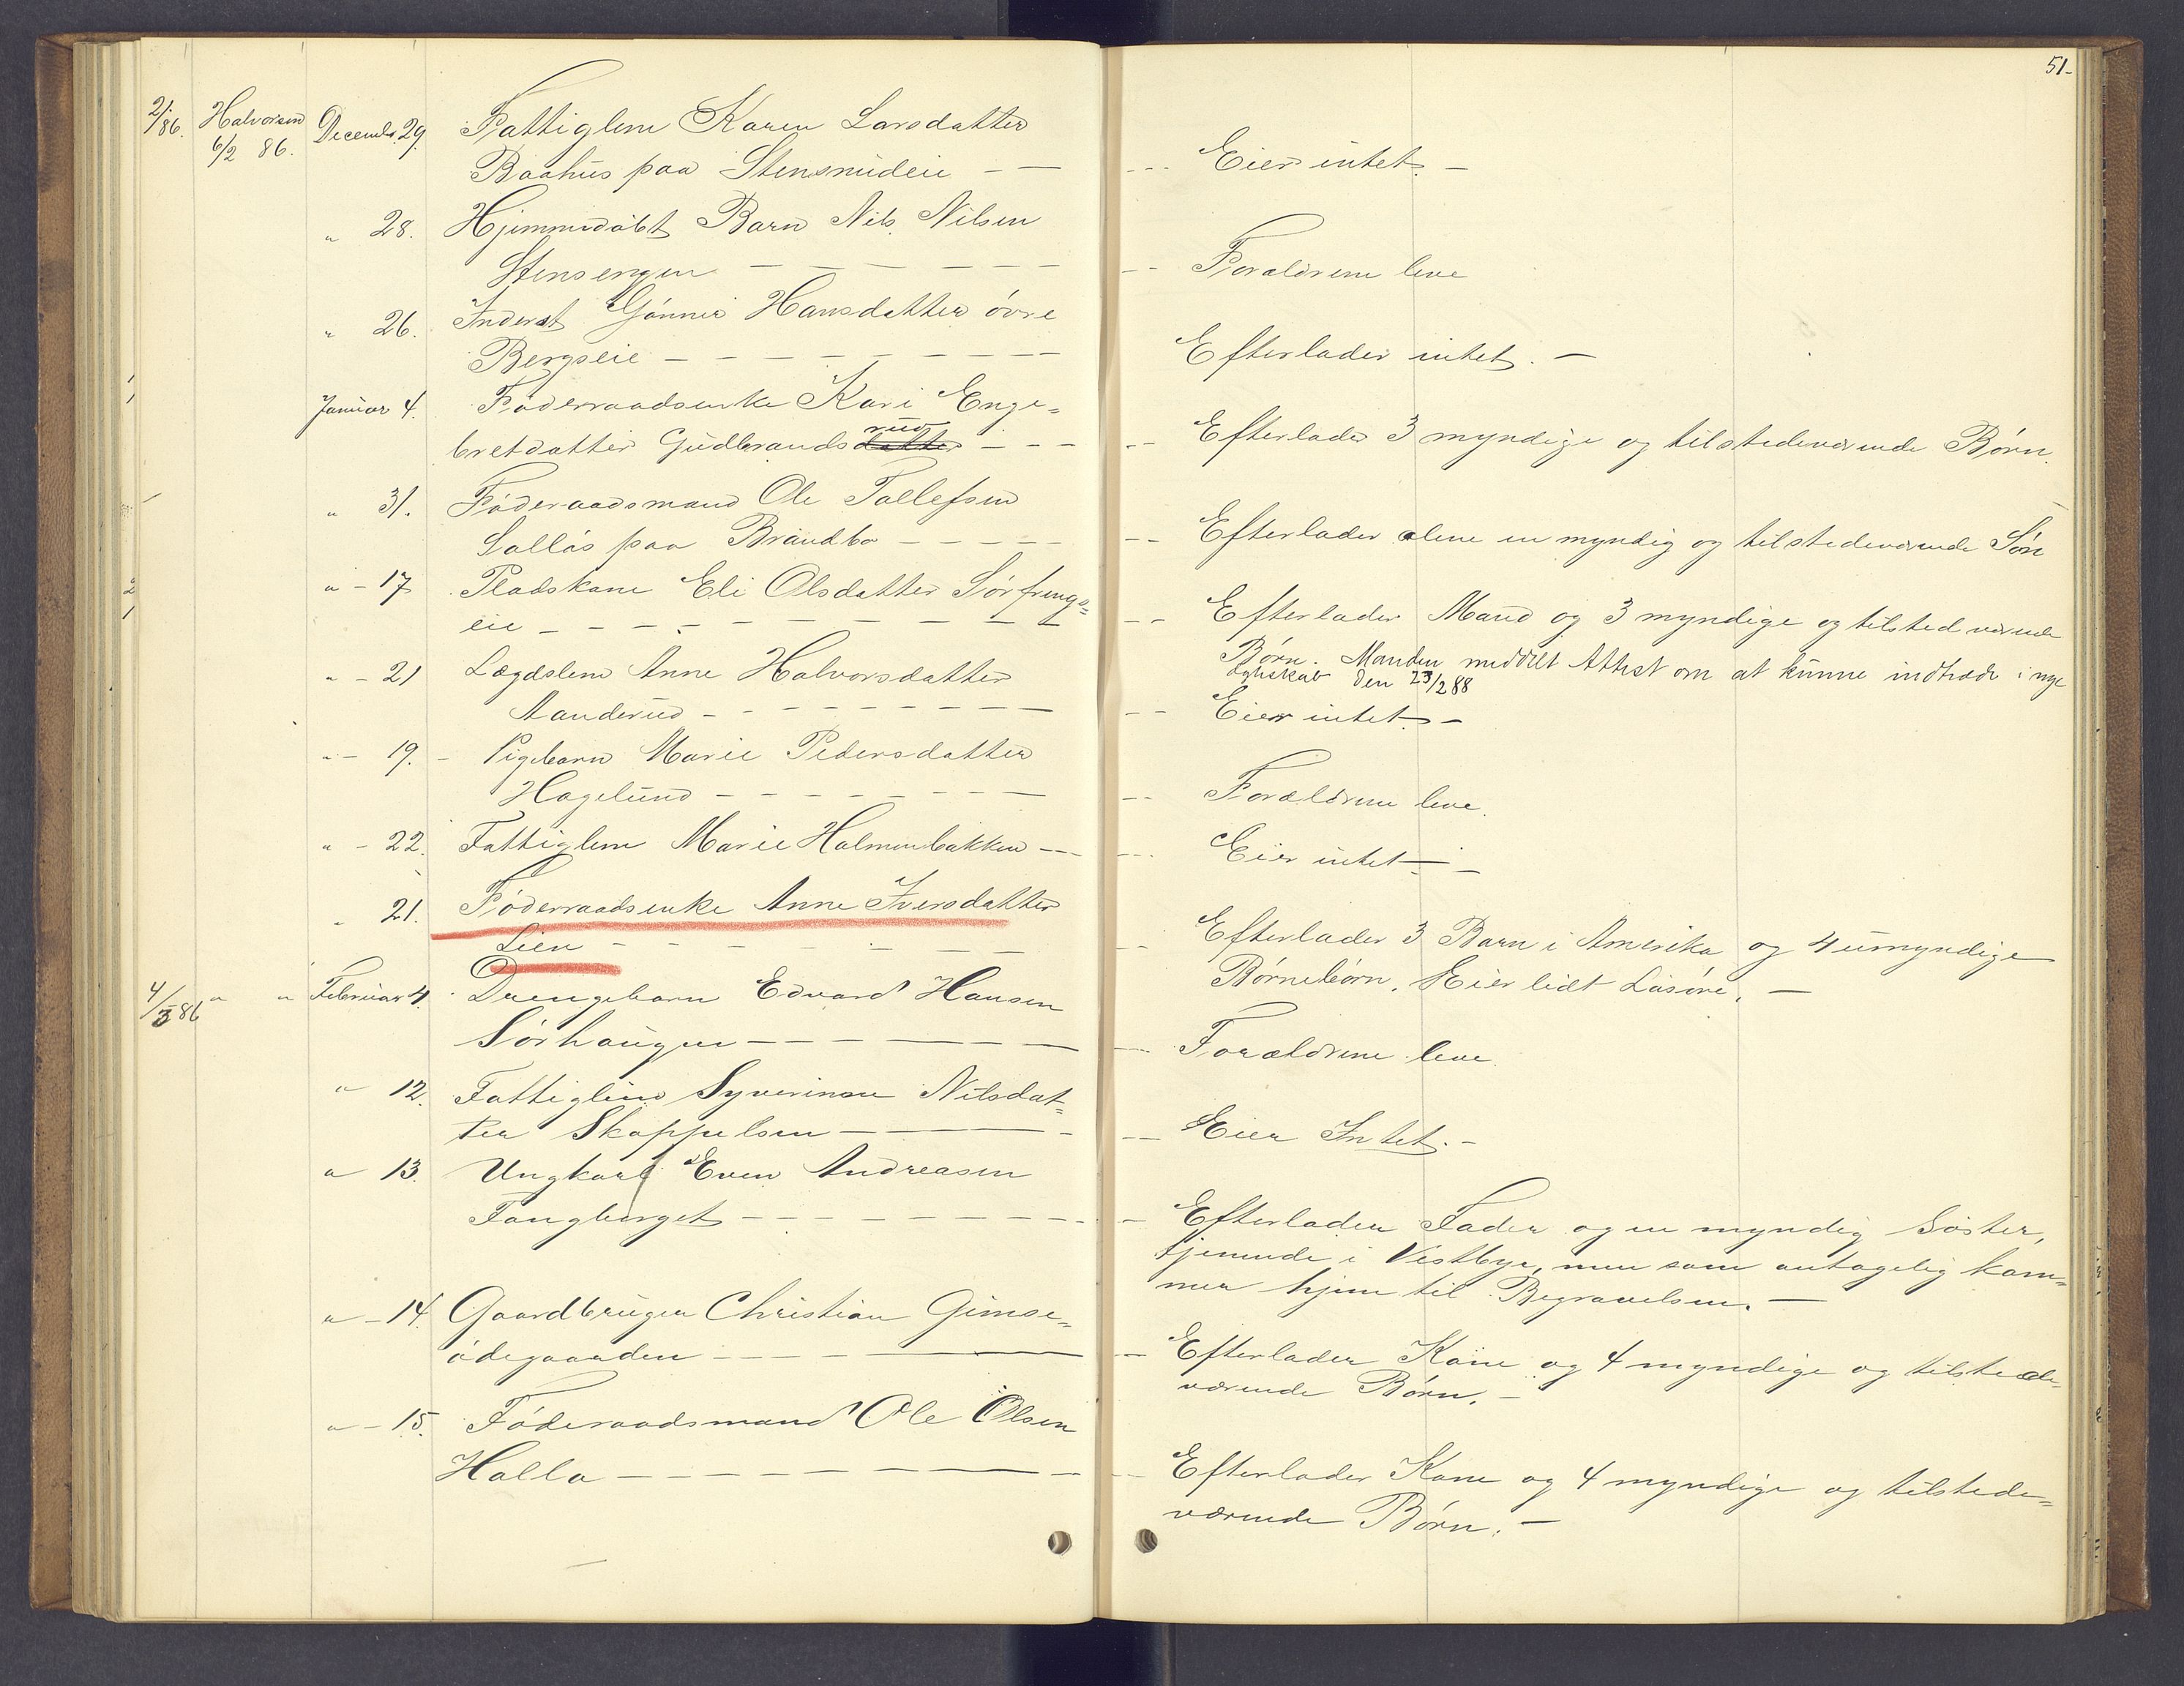 51-
2/86. Halvorsen 6/2 86. Decemb. 29. Fattiglem Karen Larsdatter
Baahus paa Stensrudeie - - - - - Eier intet. -
" 28. Hjemmedøbt Barn Nils Nilsen
Stensengen - - - - - - - - Forældrene leve
" 26. Inderst Gønner Hansdatter øvre
Bergseie - - - - - - - - - Efterlader intet. -
Januar 4. Føderraadsenke Kari Enge=
bretdatter Gudbrands datter rud - - - - - Efterlader 3 myndige og tilstedeværende Børn.
" 31. Føderaadsmand Ole Tollefsen
Sollås paa Brændbo - - - - - - - Efterlader alene en myndig og tilstedeværende Søn
" - 17 Pladskone Eli Olsdatter Sørfrengs=
eie - - - - - - - - - - - Efterlader Mand og 3 myndige og tilstedværende
Børn. Manden meddelt Attest om at kunne indtræde i nye
Egteskab den 23/2 88
" - 21 Lægdslem Anne Halvorsdatter
Aanderud - - - - - - - - - - Eier intet. -
" - 19. - Pigebarn Marie Pedersdatter
Hagelund - - - - - - - - - - Forældrene leve.
" - 22. Fattiglem Marie Holmenbakken - - - - Eier intet. -
" 21. Føderraadsenke Anne Iversdatter
Lien - - - - - - - Efterlader 3 Barn i Amerika og 4 umyndige
Børnebørn. Eier lidt Løsøre. -
4/3 86 " " Februar 4. Drengebarn Edvard Hansen
Sørhaugen - - - - - - - - Forældrene leve.
" 12. Fattiglem Syverine Nilsdat=
ter Skappelsen - - - - - Eier Intet. -
" 13. Ungkarl Even Andreasen
Fangberget - - - - - - - - - Efterlader Fader og en myndig Søster,
tjenende i Vestbye, men som antagelig kom=
mer hjem til Begravelsen. -
" - 14. Gaardbruger Christian Gimse=
ødegaarden - - - - - - Efterlader Kone og 4 myndige og tilstede=
værende Børn. -
" - 15. Føderaadsmand Ole Olsen
Halla - - - - - - - - - Efterlader Kone og 4 myndige og tilstede=
værende Børn. -